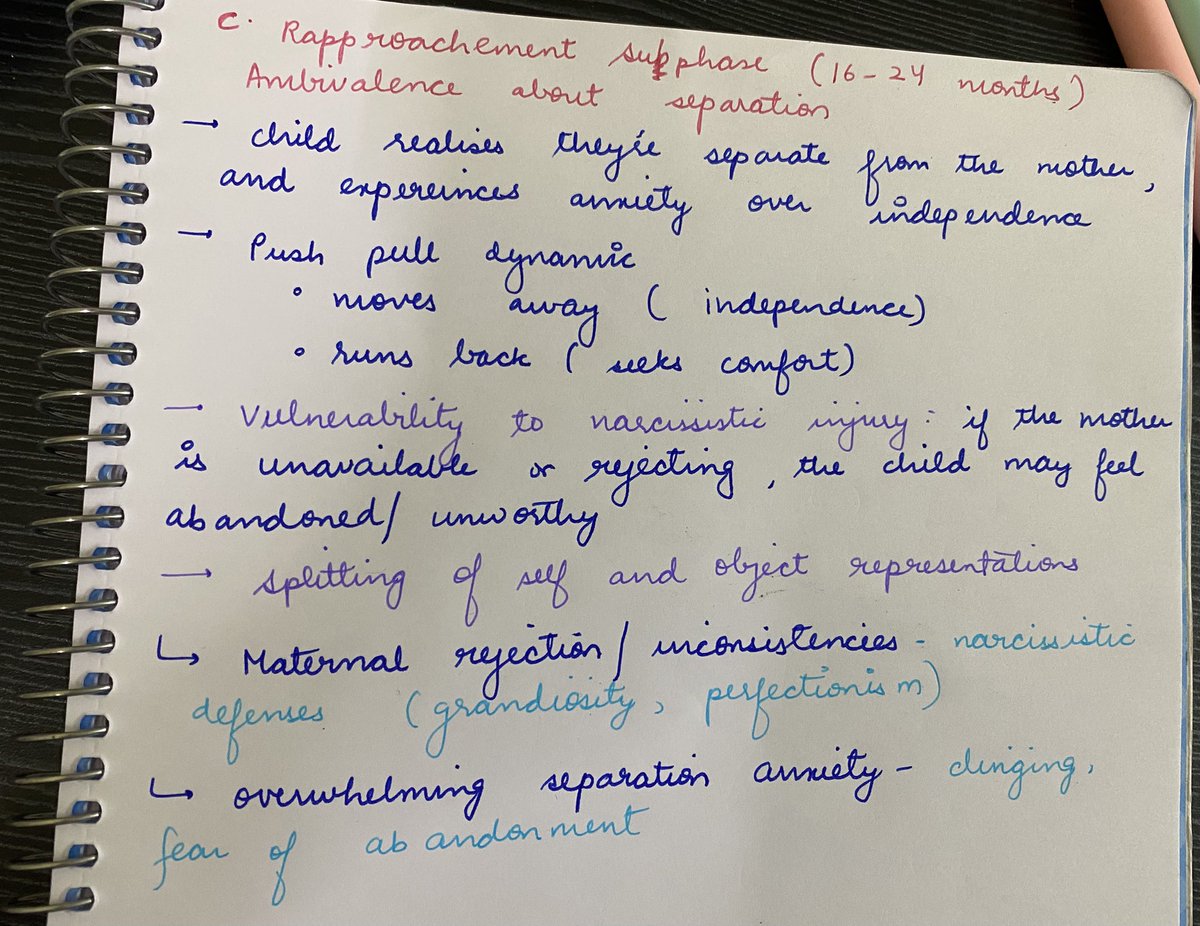 C. Rapproachement subphase (16-24 months)
Ambivalence about separation
→ child realises they're separate from the mother,
and expereinces anxiety over independence
→ Push pull dynamic
• moves away (independence)
• runs back (seeks comfort)
→ Vulnerability to narcissistic injury: if the mother
is unavailable or rejecting, the child may feel
abandoned/ unworthy
→ splitting of self and object representations
↳ Maternal rejection/ inconsistencies - narcissistic
defenses (grandiosity, perfectionism)
↳ overwhelming separation anxiety - clinging,
fear of abandonment